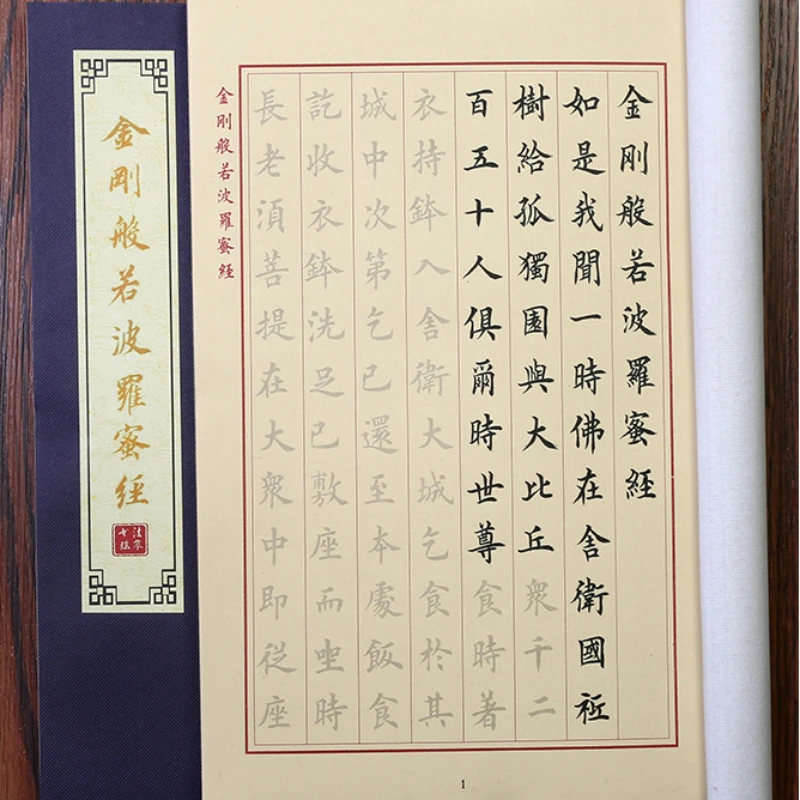 金剛般若波羅蜜經
如是我聞一時佛在舍衛國祇
樹給孤獨園與大比丘衆千二
百五十人俱爾時世尊食時著
衣持鉢入舍衛大城乞食於其
城中次第乞已還至本處飯食
訖收衣鉢洗足已敷座而坐時
長老須菩提在大衆中即從座
金剛般若波羅蜜經
1
金剛般若波羅蜜經